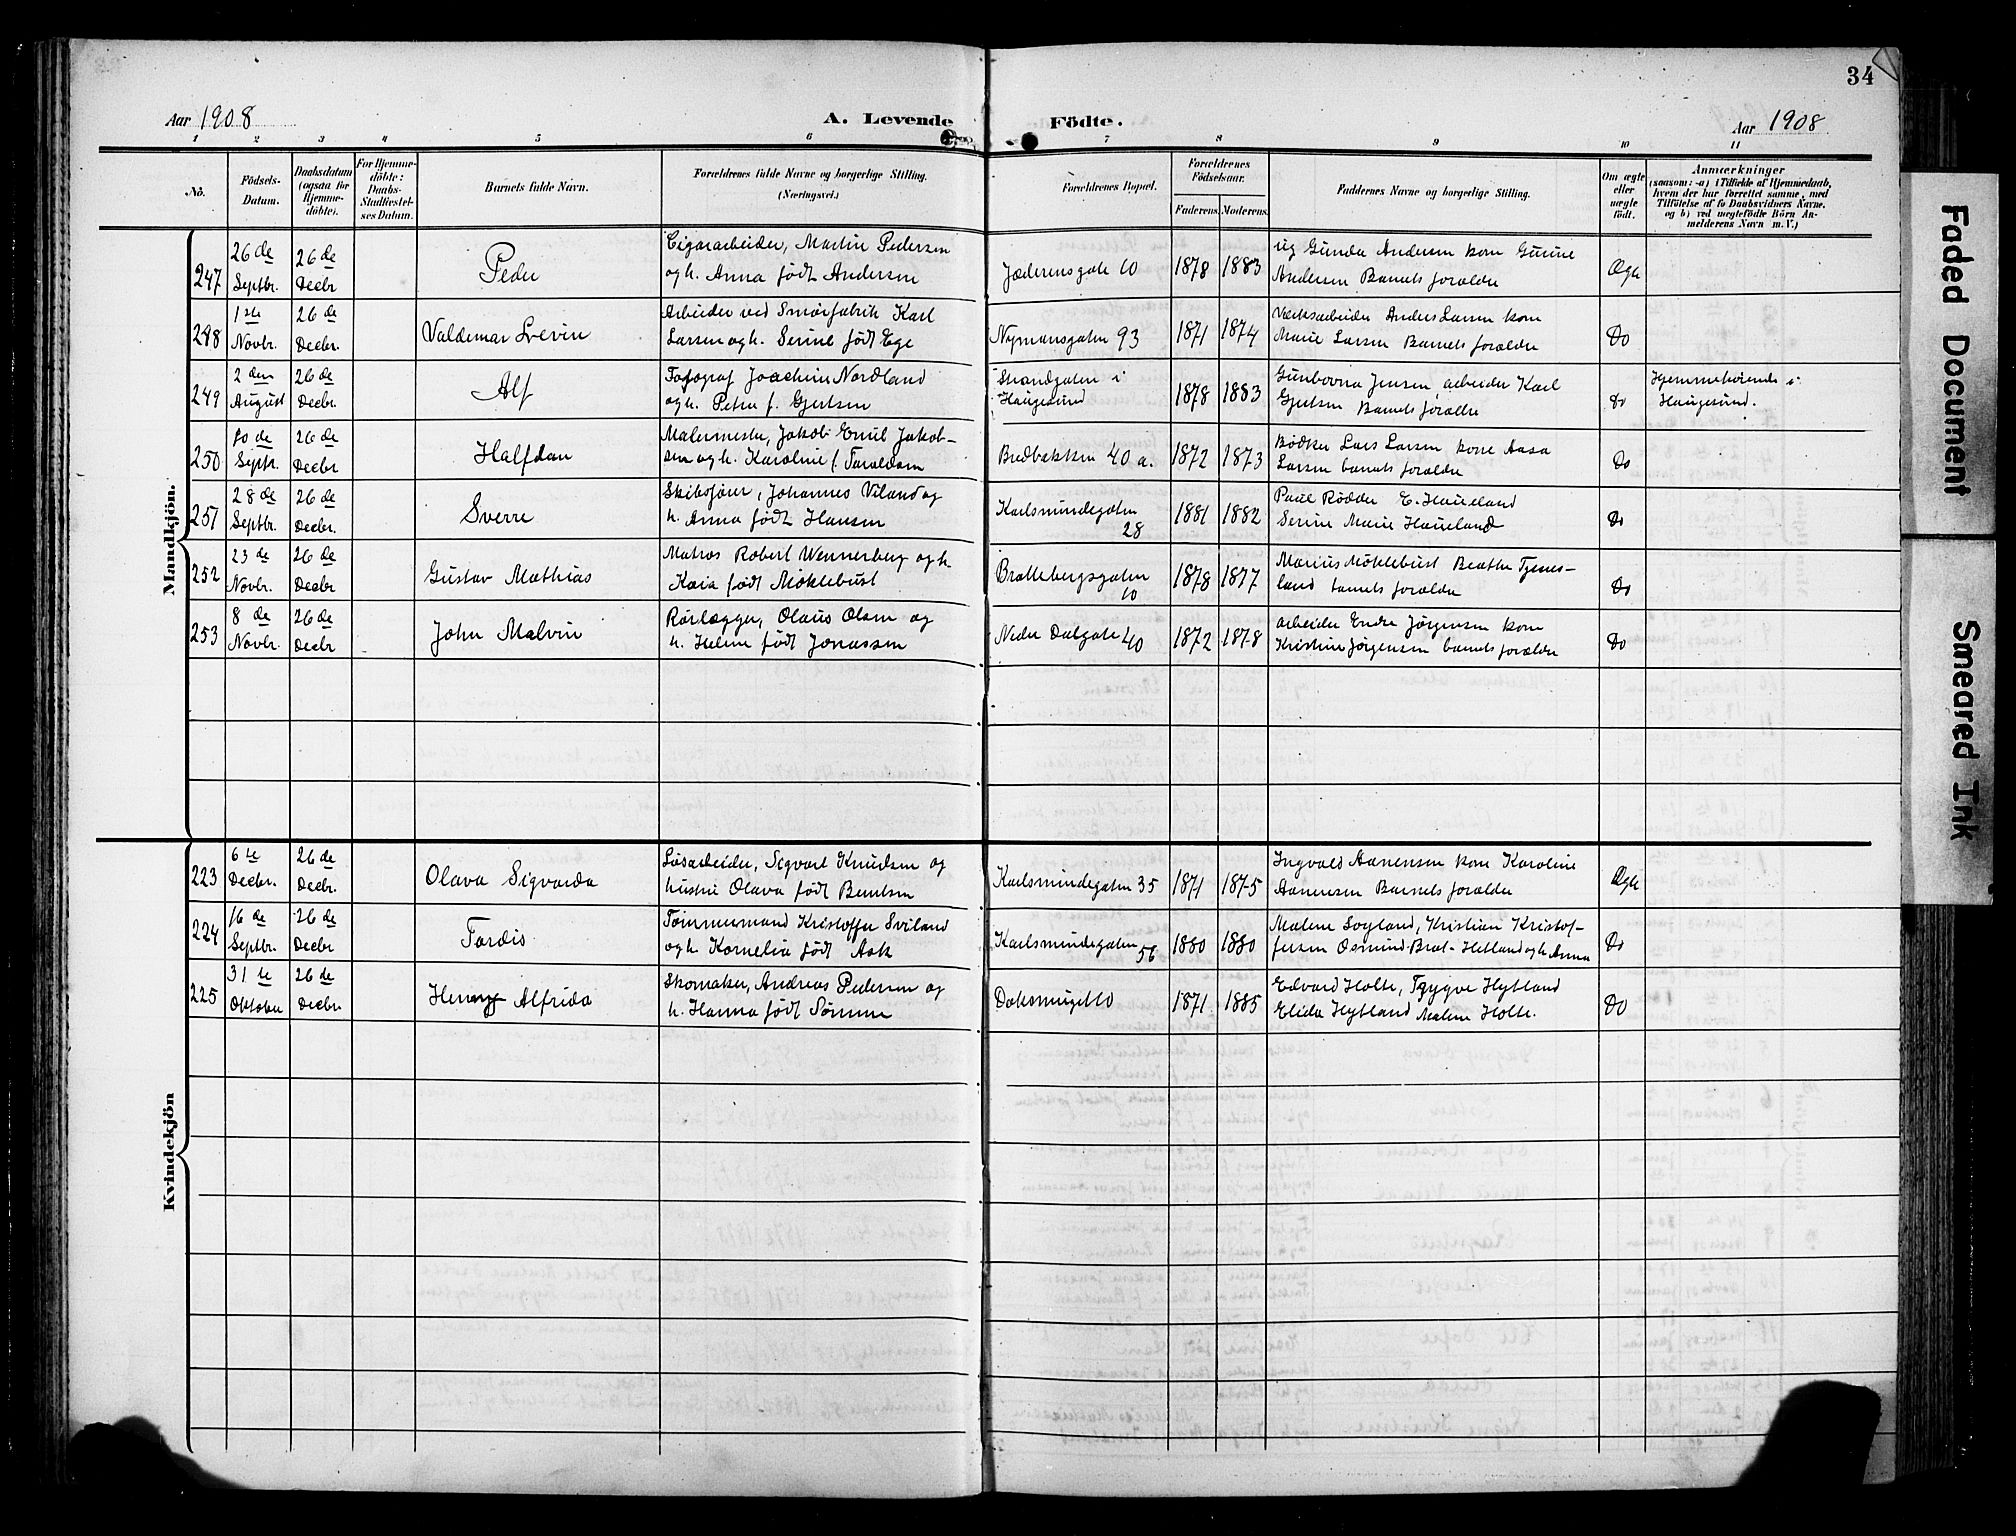 34
Aar 1908
A. Levende Födte.
Aar 1908
1 2 3 4 5 6 7 8 9 10 11
No.
Födsels-Datum.
Daabsdatum (ogsaa for Hjemmedöbte).
For Hjemmedöbte: Daabs-Stadfæstelses Datum.
Barnets fulde Navn.
Forældrenes fulde Navne og borgerlige Stilling. (Næringsvei.)
Forældrenes Bopæl.
Forældrenes Födselsaar.
Faderens. Moderens.
Faddernes Navne og borgerlige Stilling.
Om ægte eller uægte födt.
Anmærkninger
(saasom: a) i Tilfælde af Hjemmedaab, hvem der har forrettet samme, med Tilföielse af to Daabsvidners Navne. og b) ved uægtefödte Börn Anmelderens Navn m. V.)
Mandkjön.
247 26 de Septbr. 26 de Decbr Peder
Cigararbeider, Martin Pedersen
og h. Anna født Andersen
Jæderensgate 10 1878 1883
ug Gunda Andersen kone Gurine
Andersen Barnets forældre
Ægte
248 1 ste Novbr. 26 de Decbr. Valdemar Severin
Arbeider ved Smørfabrik Karl
Larsen og h. Serine født Ege
Nymansgaten 93 1871 1874
Værksarbeider Anders Larsen kone
Marie Larsen Barnets forældre
Do
249 2 den August 26 de Decbr. Alf
Fotograf Joachim Nordland
og h. Petra f. Gjertsen
Strandgaten i
Haugesund
1878 1883
Jensen, arbeider Karl
Gjertsen Barnets forældre
Do
Hjemmehørende i
Haugesund.
250 10 de Septr. 26 de Decbr Halfdan
Malermester, Jakob Emil Jakob-
sen og h. Karoline f. Taraldsen
Bredbakken 40 a. 1872 1873
Bødker Lars Larsen kone Aasa
Larsen barnets forældre
Do
251 28 de Septbr. 26 de Decbr. Sverre
Skibsfører, Johannes Viland og
h. Anna født Hansen
Karlsmindegaten
28
1881 1882
Paul Rødder E. Haueland
Serine Marie Haueland
Do
252 23 de Novbr. 26 de Decbr Gustav Mathias
Matros Robert Wennerberg og h.
Kaia født Møklebust
Brattebergsgaten
10
1878 1877
Marius Møklebust Beathe Tjens-
land barnets forældre
Do
253 8 de Novbr. 26 de Decbr John Malvin
Rørlægger, Olaus Olsen og
h. Helene født Jonassen
Nedre Dalgate 40 1872 1878
arbeider Endre Jørgensen kone
Kristine Jørgensen barnets forældre
Do
Kvindekjön
223 6 te Decbr. 26 de Decbr. Olava Sigvarda
Løsarbeider, Sigvart Knudsen og
hustru Olava født Berntsen
Karlsmindegaten 35 1871 1875
Ingvald Aanensen kone Karoline
Aanensen Barnets forældre
Ægte
224 16 de Septbr. 26 de Decbr Tordis
Tømmermand Kristoffer Sviland
og h. Kornelia født Ask
Karlsmindegaten
56
1880 1880
Malene Sogland, Kristian Kristof-
fersen Osmund Brat- Hetland og h. Anna
Do
225 31 te Oktober 26 de Decbr. Henny Alfrida
Skomaker, Andreas Pedersen og
h. Hanna født Sømme
Doksmuget 10 1871 1885
Edvard Holte, Trygve Hytland
Elida Hytland Malene Holte.
Do
Faded Document
Smeared Ink